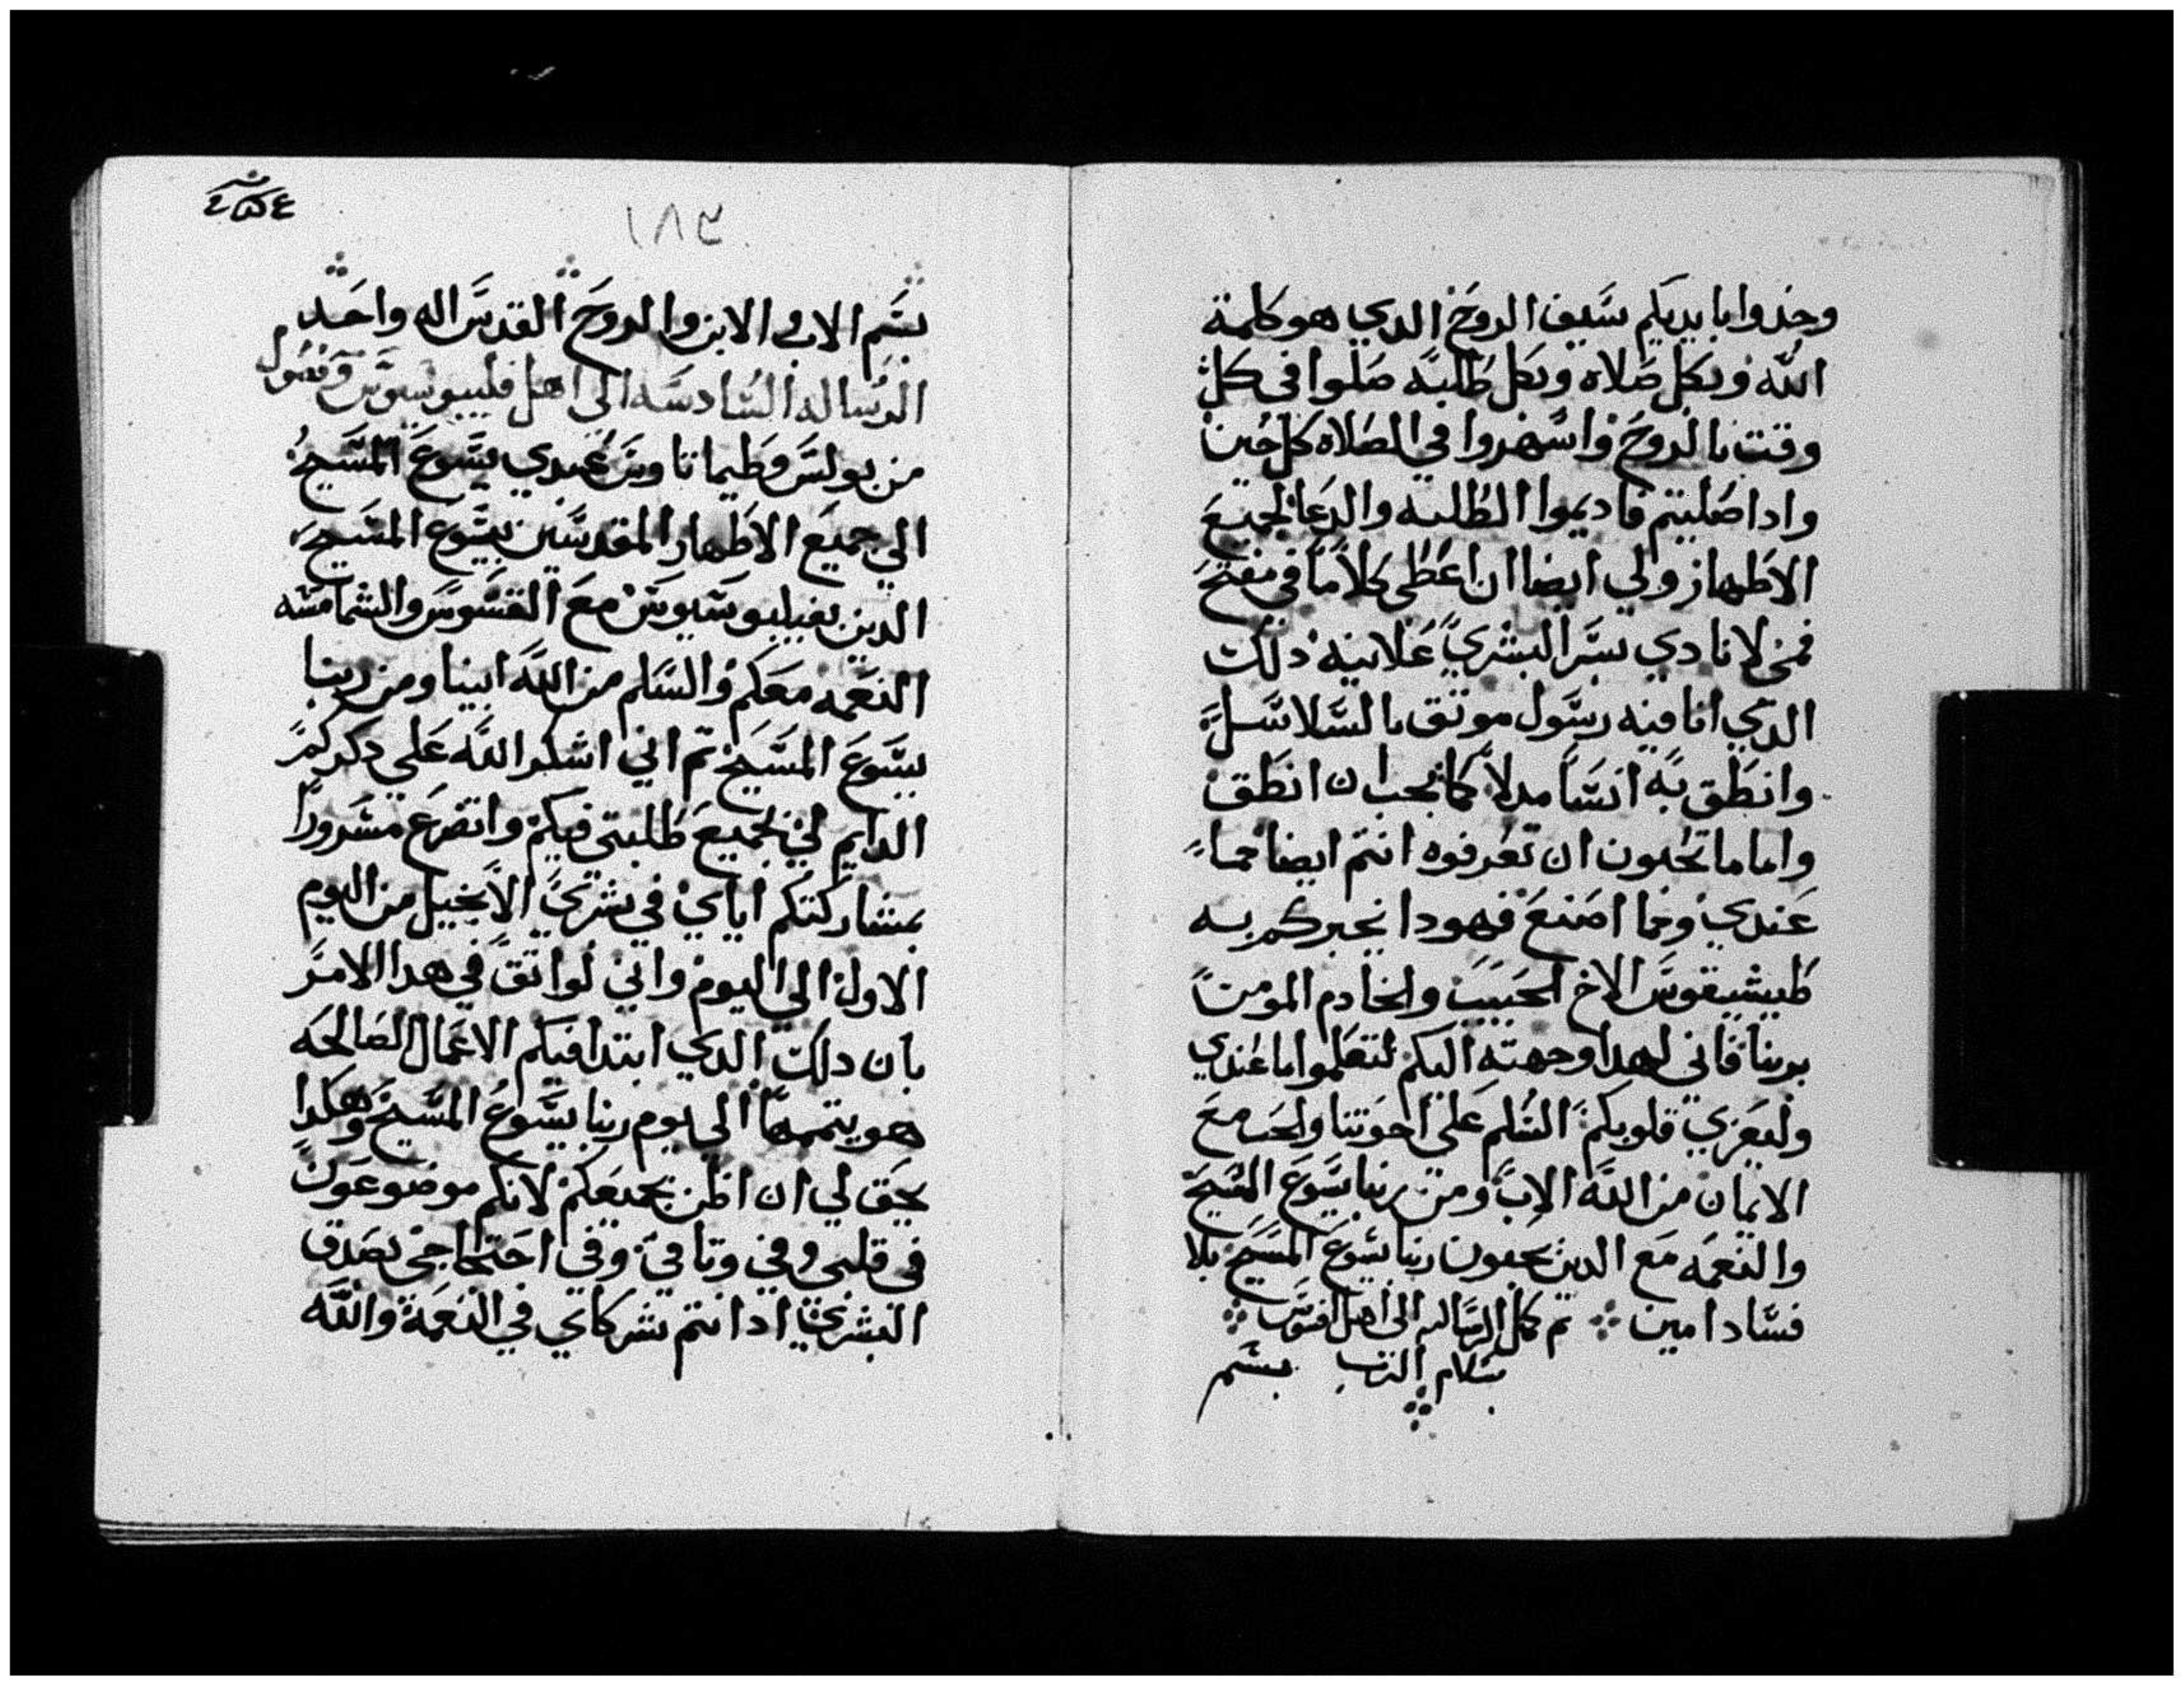 وخدوا بايديكم سيف الروح الدي هو كلمة
الله وبكل صلاه وبكل طلبه صلوا في كل
وقت بالروح واسهروا في الصلاه كل حين
وادا صليتم فاديموا الطلبه والدعا لجميع
الاطهار ولي ايضا ان اعطى كلاما في مفتح
فمى لانادي بسر البشري علانيه دلك
الدي انا فيه رسول موثق بالسلاسل
وانطق به انسا مدلا كما يجب ان انطق
واما ما تحبون ان تعرفوه انتم ايضا مما
عندي ومما اصنع فهودا يخبركم به
طيشيقوس الاخ الحبيب والخادم المومن
بربنا فاني لهدا وجهته اليكم لتعلموا ما عندي
وليعزي قلوبكم السلم على اخوتنا والحب مع
الايمان من الله الاب ومن ربنا يسوع المسيح
والنعمه مع الدين يحبون ربنا يسوع المسيح بلا
فساد امين تم كمل الرساله الى اهل افسوس
بسلام الرب بسم
١٨٣
بسم الاب والابن والروح القدس اله واحد
الرساله السادسه الى اهل فليبوسيوس وفصول
من بولس وطيماتاوس عبدي يسوع المسيح
الي جميع الاطهار المقدسين بيسوع المسيح
الدين بفيلبوسيوس مع القسوس والشمامسه
النعمه معكم والسلم من الله ابينا ومن ربنا
يسوع المسيح تم اني اشكر الله علي دكركم
الدايم لي بجميع طلبتي فيكم واتضرع مسرورا
بمشاركتكم اياي في بشري الانجيل من اليوم
الاول الي اليوم واني لواتق في هدا الامر
بان دلك الدي ابتدا فيكم الاعمال الصالحه
هو يتممها الي يوم ربنا يسوع المسيح وهكدا
يحق لي ان اظن بجميعكم لانكم موضوعون
في قلبي وفي وتاقي وفي احتجاجي بصدق
البشري اد انتم شركاي في النعمة والله